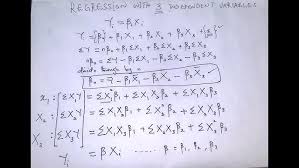 REGRESSION WITH 3 INDEPENDENT VARIABLES
Yi = βiXi
Y = β0 + β1X1 + β2X2 + β3X3 +
ΣY = nβ0 + β1ΣX1 + β2ΣX2 + β3ΣX3
divide through by n
β0 = Ȳ - β1X̄1 - β2X̄2 - β3X̄3
X1: [ΣX1Y] = ΣX1²β1 + ΣX1X2β2 + ΣX1X3β3
X2: [ΣX2Y] = ΣX1X2β1 + ΣX2²β2 + ΣX2X3β3
X3: [ΣX3Y] = ΣX1X3β1 + ΣX2X3β2 + ΣX3²β3
Yi = βXi ...... β = β1, β2, β3